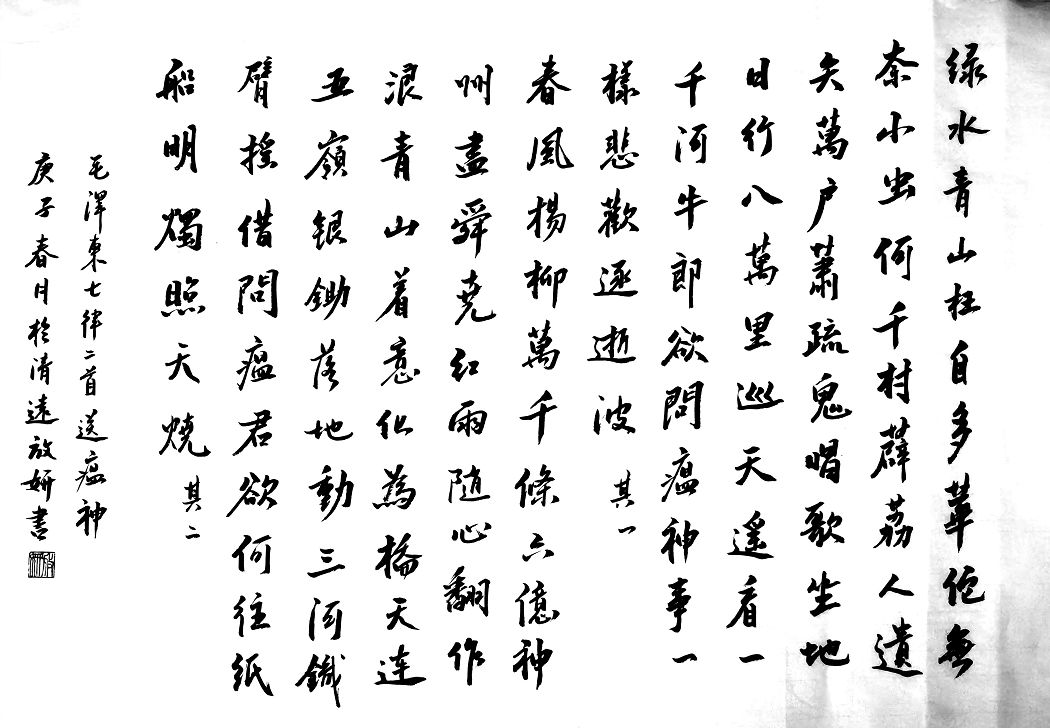 绿水青山枉自多華佗無
奈小虫何千村薜荔人遺
矢萬户蕭疏鬼唱歌坐地
日行八萬里巡天遥看一
千河牛郎欲問瘟神事一
樣悲歡逐逝波 其一
春風楊柳萬千條六億神
州盡舜尭红雨随心翻作
浪青山着意化為橋天连
五嶺银鋤落地動三河鐵
臂摇借問瘟君欲何往紙
船明燭照天燒 其二
毛澤東七律二首送瘟神
庚子春月於清遠放妍書